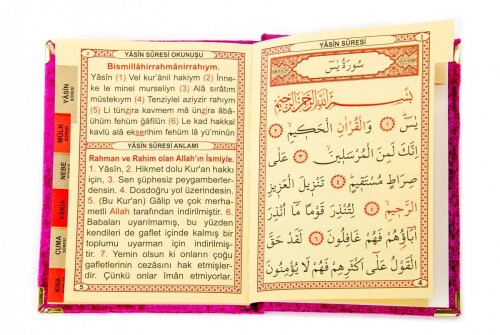 YÂSİN SÛRESİ OKUNUŞU
Bismillâhirrahmânirrahıym.
Yâsîn (1) Vel kur'ânil hakiym (2) İnne-
ke le minel murseliyn (3) Alâ sırâtım
müstekıym (4) Tenziylel aziyzir rahıym
(5) Li tünzira kavmem mâ ünzira âbâ-
ühüm fehüm ğâfilûn (6) Le kad hakkal
kavlü alâ ekserihim fehüm lâ yü'minûn
YÂSİN SÛRESİ ANLAMI
Rahman ve Rahim olan Allah'ın İsmiyle.
1. Yâsîn, 2. Hikmet dolu Kur'an hakkı
için, 3. Sen şüphesiz peygamberler-
densin. 4. Dosdoğru yol üzerindesin.
5. (Bu Kur'an) Gâlip ve çok merha-
metli Allah tarafından indirilmiştir. 6.
Babaları uyarılmamış, bu yüzden
kendileri de gaflet içinde kalmış bir
toplumu uyarman için indirilmiş-
tir. 7. Yemin olsun ki onların çoğu
gafletlerinin cezasını hak etmişler-
dir. Çünkü onlar İman etmiyorlar.
5
YÂSİN
SÛRESİ
MÜLK
SÛRESİ
NEBE
SÛRESİ
VÂKIA
SÛRESİ
CUMA
SÛRESİ
KISA
YÂSİN SÛRESİ
سُورَةُ يٰسٓ
بِسْمِ اللّٰهِ الرَّحْمٰنِ الرَّحِيمِ
يٰسٓ ﴿١﴾ وَالْقُرْاٰنِ الْحَكِيمِ ﴿٢﴾
اِنَّكَ لَمِنَ الْمُرْسَلِينَ ﴿٣﴾ عَلٰى
صِرَاطٍ مُسْتَقِيمٍ ﴿٤﴾ تَنْزِيلَ الْعَزِيزِ
الرَّحِيمِ ﴿٥﴾ لِتُنْذِرَ قَوْمًا مَٓا اُنْذِرَ
اٰبَٓاؤُهُمْ فَهُمْ غَافِلُونَ ﴿٦﴾ لَقَدْ حَقَّ
الْقَوْلُ عَلٰٓى اَكْثَرِهِمْ فَهُمْ لَا يُؤْمِنُونَ
4